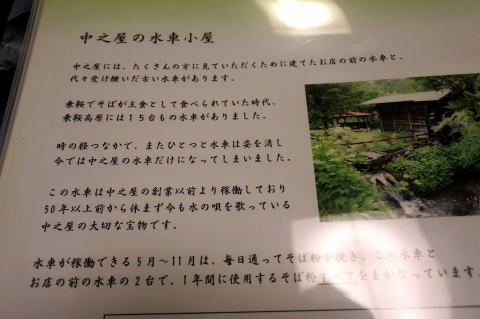 中之屋の水車小屋
中之屋には、たくさんの方に見ていただくために建てたお店の前の水車と、
代々受け継いだ古い水車があります。
乗鞍でそばが主食として食べられていた時代、
乗鞍高原には１５台もの水車がありました。
時の経つなかで、またひとつと水車は姿を消し
今では中之屋の水車だけになってしまいました。
この水車は中之屋の創業以前より稼働しており
50年以上前から休まず今も水の唄を歌っている
中之屋の大切な宝物です。
水車が稼働できる５月～11月は、毎日通ってそば粉を挽き、この水車と
お店の前の水車の２台で、１年間に使用するそば粉すべてをまかなっています。